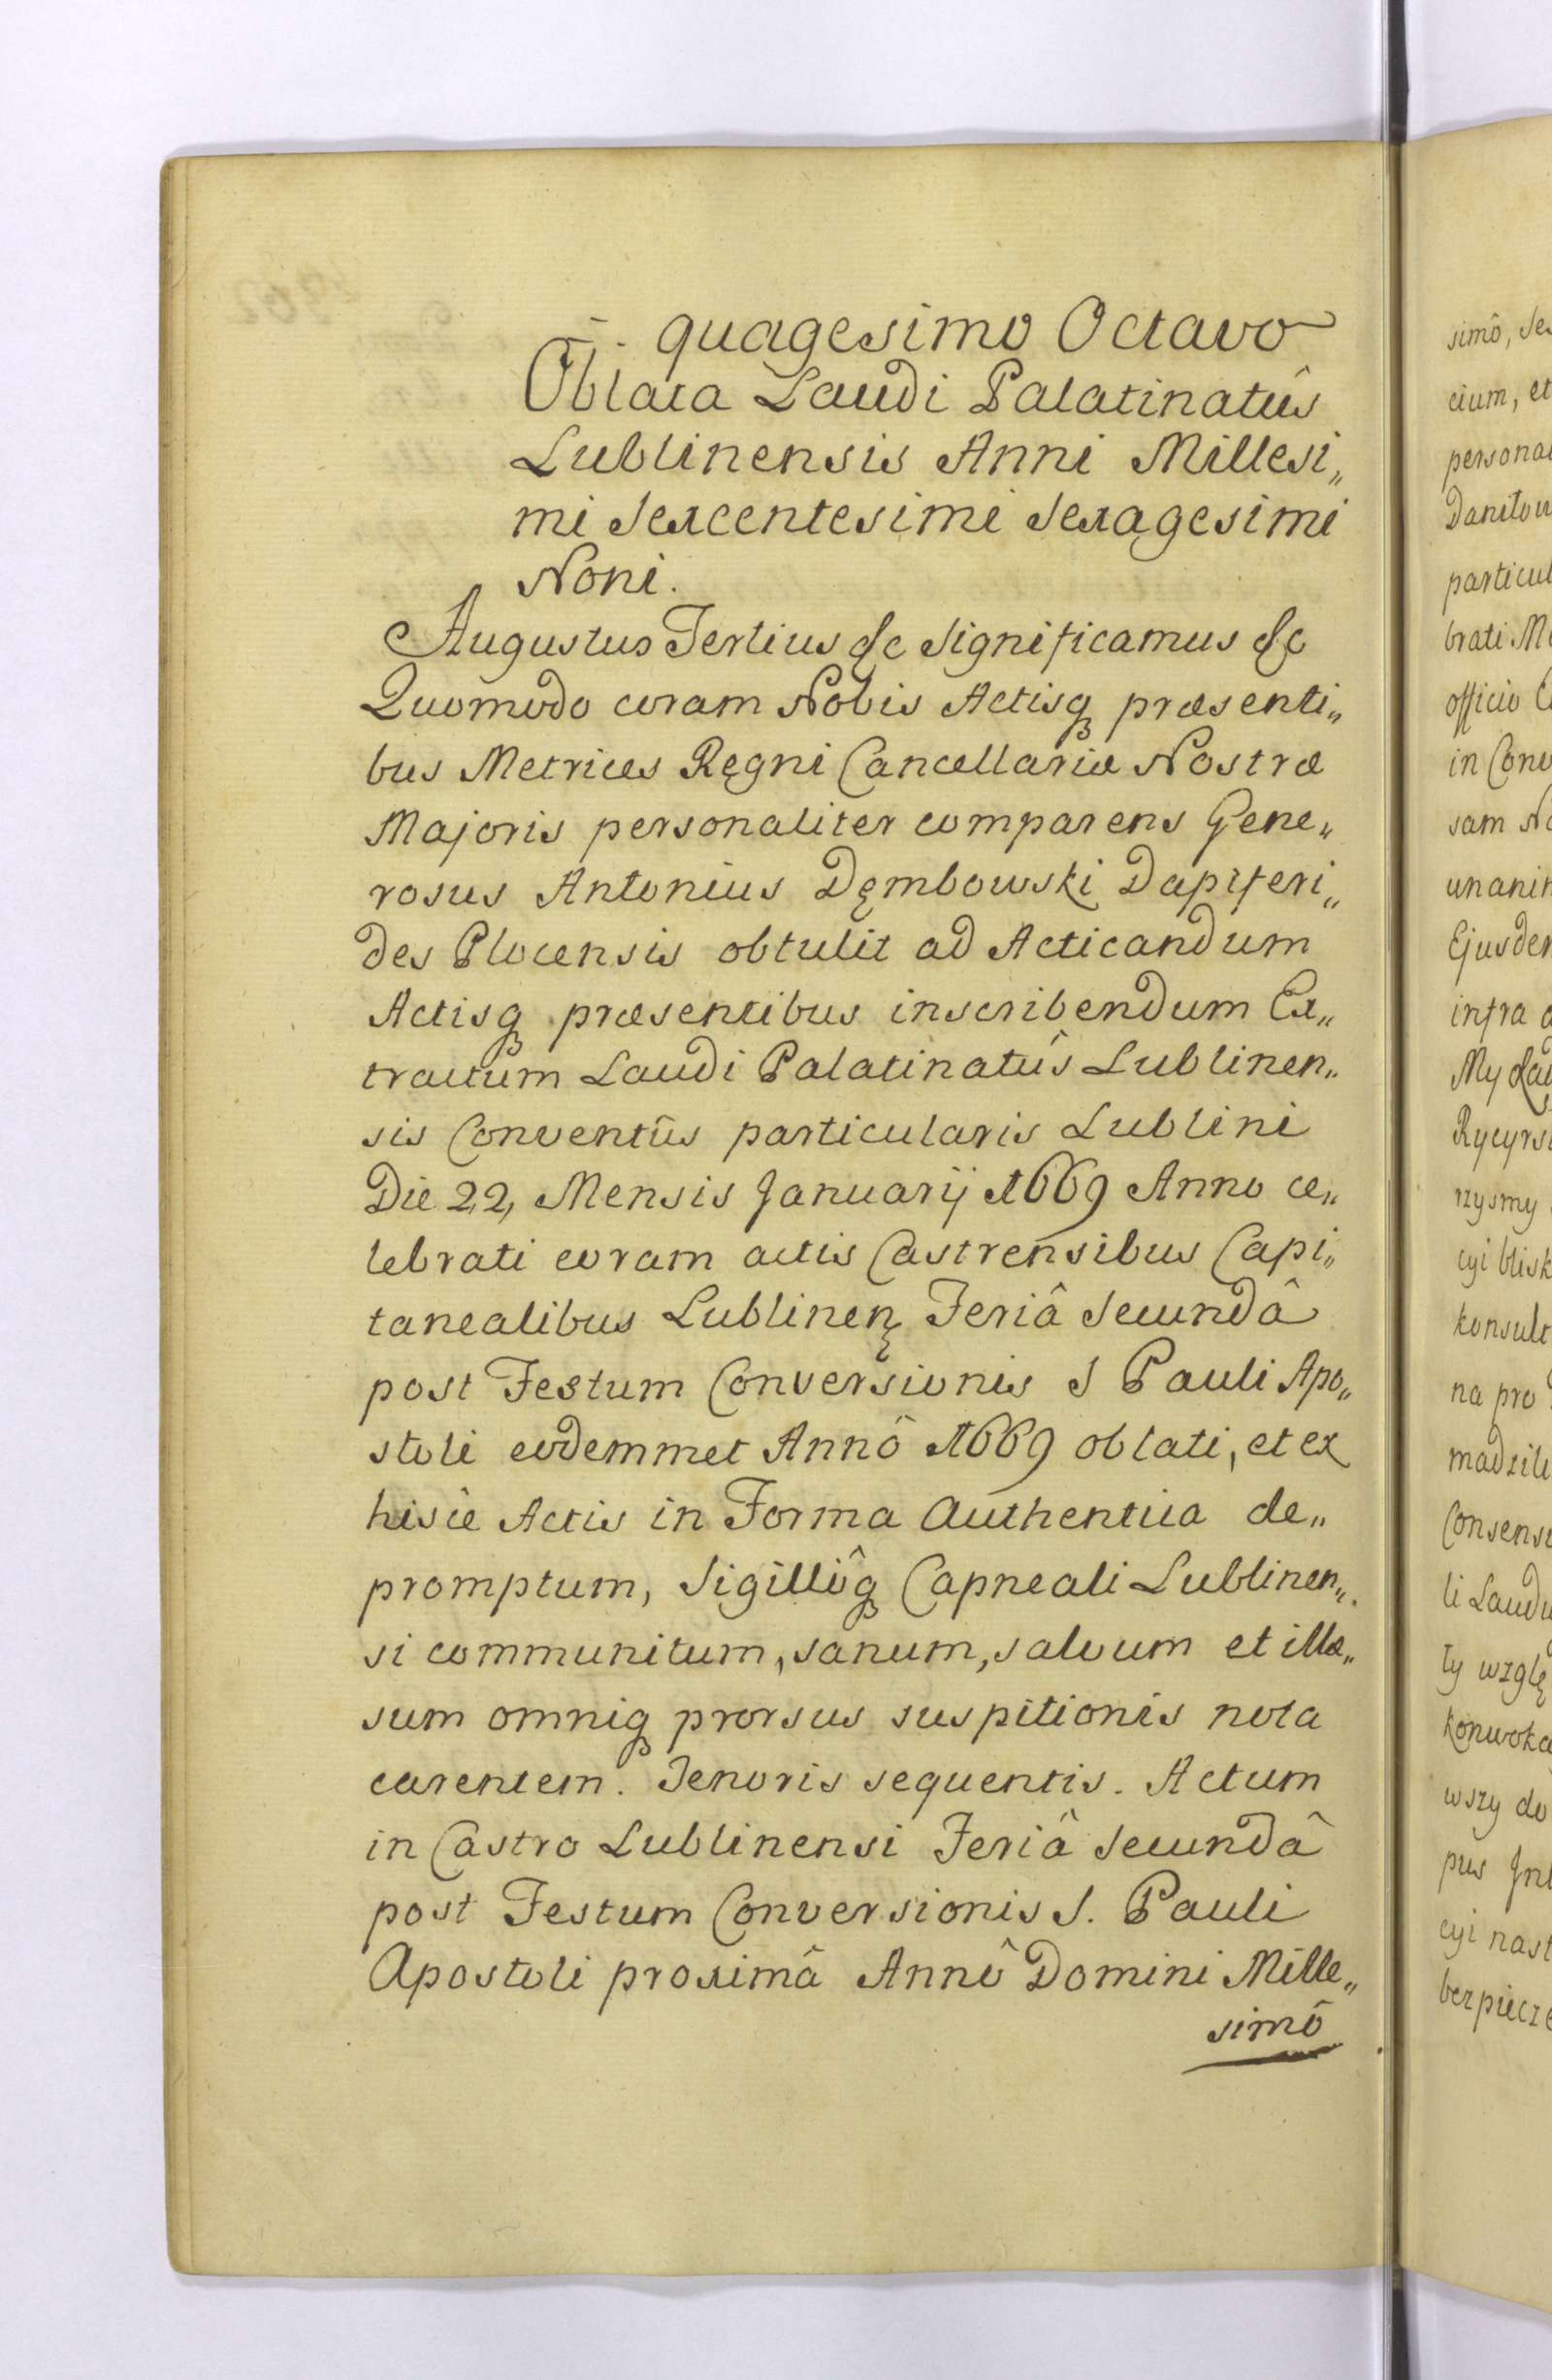 quagesimo Octavo
Oblata Laudi Palatinatûs
Lublinensis Anni Millesi„
mi Sexcentesimi Sexagesimi
Noni.
Augustus Tertius &c Significamus &c
Quomodo coram Nobis Actisq præsenti„
bus Metrices Regni Cancellariæ Nostræ
Majoris personaliter comparens Gene„
rosus Antonius Dęmbowski Dapiferi„
des Plocensis obtulit ad Acticandum
Actisq præsentibus inscribendum Ex„
tractum Laudi Palatinatûs Lublinen„
sis Conventûs particularis Lublini
Die 22, Mensis Januarij 1669 Anno ce„
lebrati coram actis Castrensibus Capi„
tanealibus Lublinen Feriâ Secundâ
post Festum Conversionis S Pauli Apo„
stoli eodemmet Annô 1669 oblati, et ex
hisce Actis in Forma Authentica de„
promptum, Sigillôq Capneali Lublinen„
si communitum, sanum, salvum et illæ„
sum omniq prorsus suspitionis nota
carentem. Tenoris sequentis. Actum
in Castro Lublinensi Feriâ Secundâ
post Festum Conversionis S. Pauli
Apostoli proximâ Annô Domini Mille„
simô
simô, Se
cium, et
personal
Daniłow
particul
brati M
officio C
in Conv
sam No
unanim
Ejusdem
infra a
My
Rycyrs
rzysmy
cyi blisk
konsult
na pro
madzili
Consens
li Laudu
ty wzglę
konwoka
wszy do
pus Jn
cyi nast
berpiecze